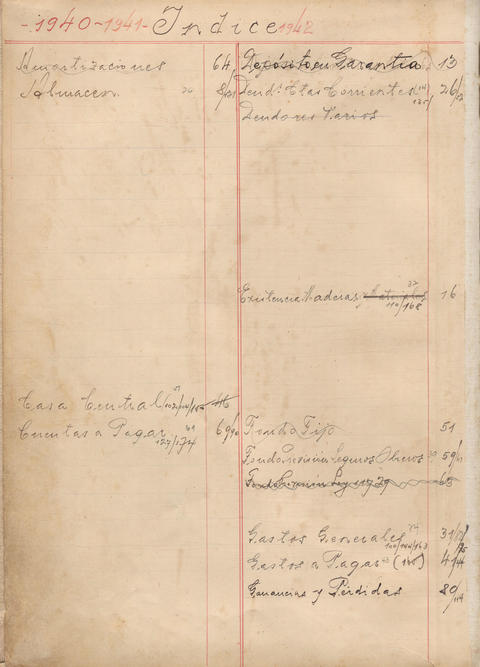 - 1940 - 1941 - Indice 1942
Amortizaciones 64
Almacen
Depósito en Garantia 13
Deud. Ctas Corrientes 26
Deudores Varios
Existencia Maderas y Materiales 16
110/168
Casa Central 46
Cuentas a Pagar 69
127/174
Fondo Fijo 51
Fondo Prevision Seguros Obreros 59
Fondo Prevision Ley 11729 65
Gastos Generales 31
Gastos a Pagar 41
Ganancias y Pérdidas 80/114